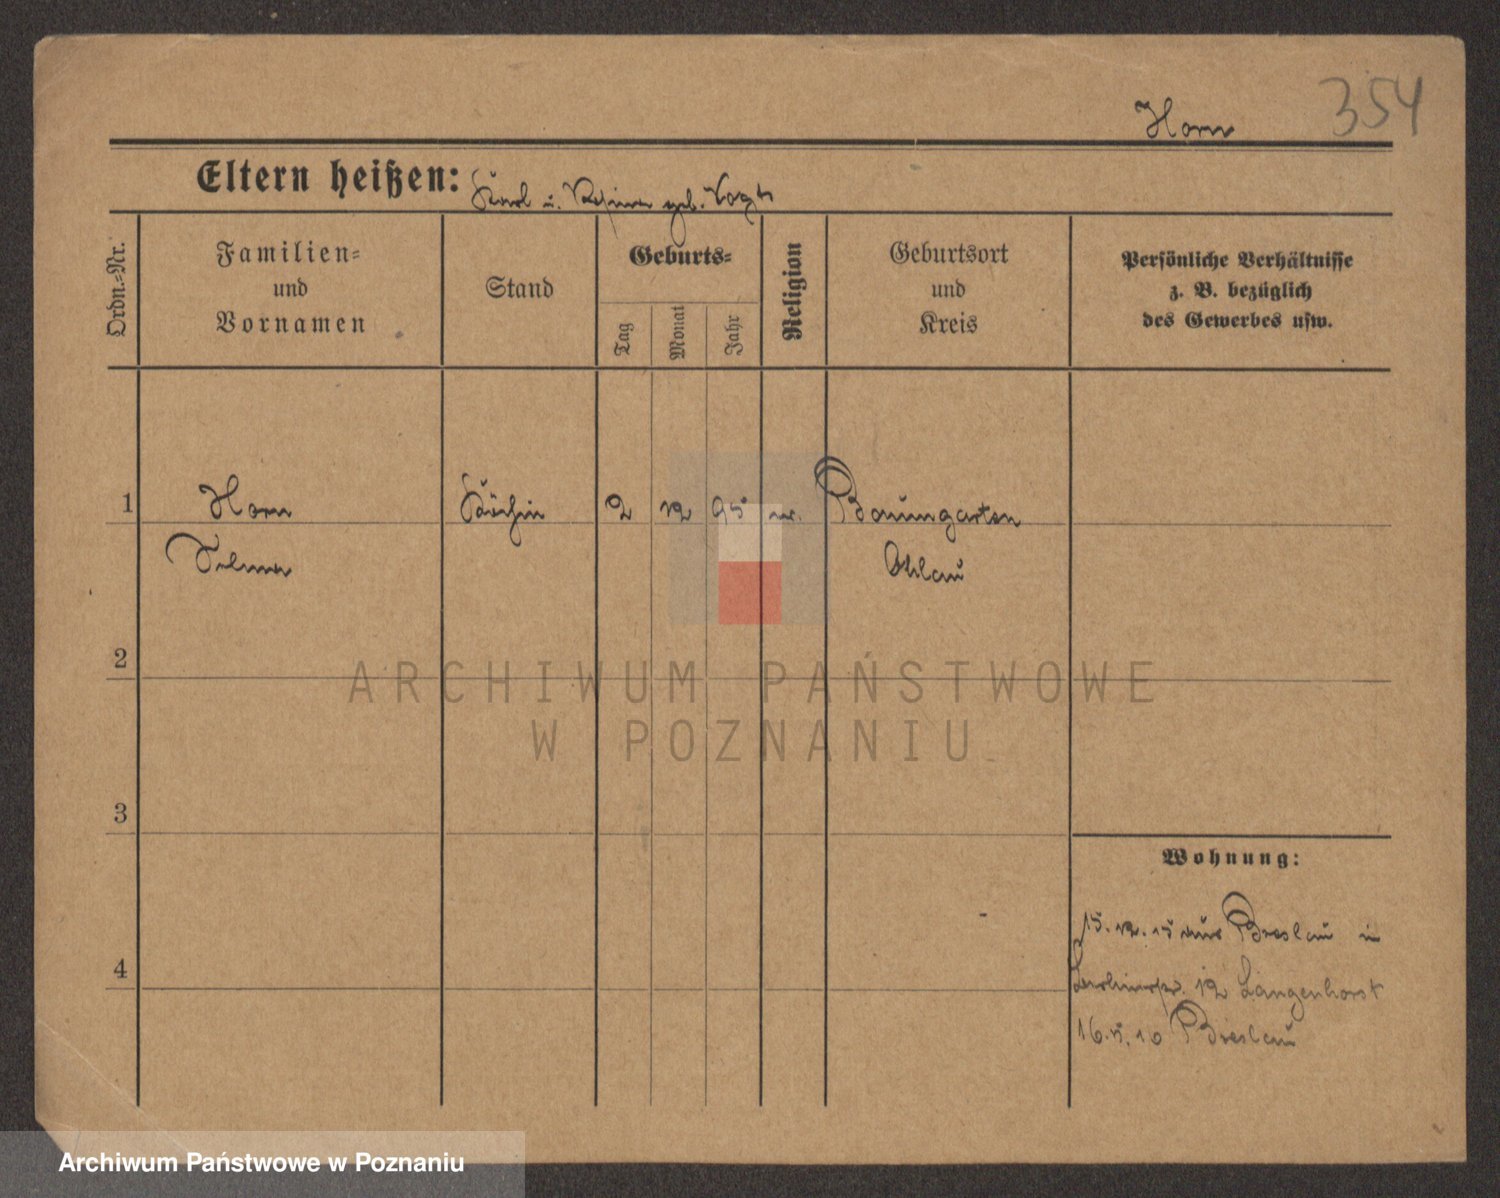 354
Horn
Eltern heißen: Karl u. geb. Vogt
Ordn.-Nr.
Familien-
und
Vornamen
Stand
Geburts-
Tag
Monat
Jahr
Religion
Geburtsort
und
Kreis
Persönliche Verhältnisse
z. B. bezüglich
des Gewerbes usw.
1 Horn Köchin 2 12 95 Baumgarten
Selma Ohlau
2
3
4
ARCHIWUM PAŃSTWOWE
W POZNANIU
Wohnung:
15.12.15 aus Breslau in
Berlinerstr. 12 Langenhorst
16.5.16 Breslau
Archiwum Państwowe w Poznaniu